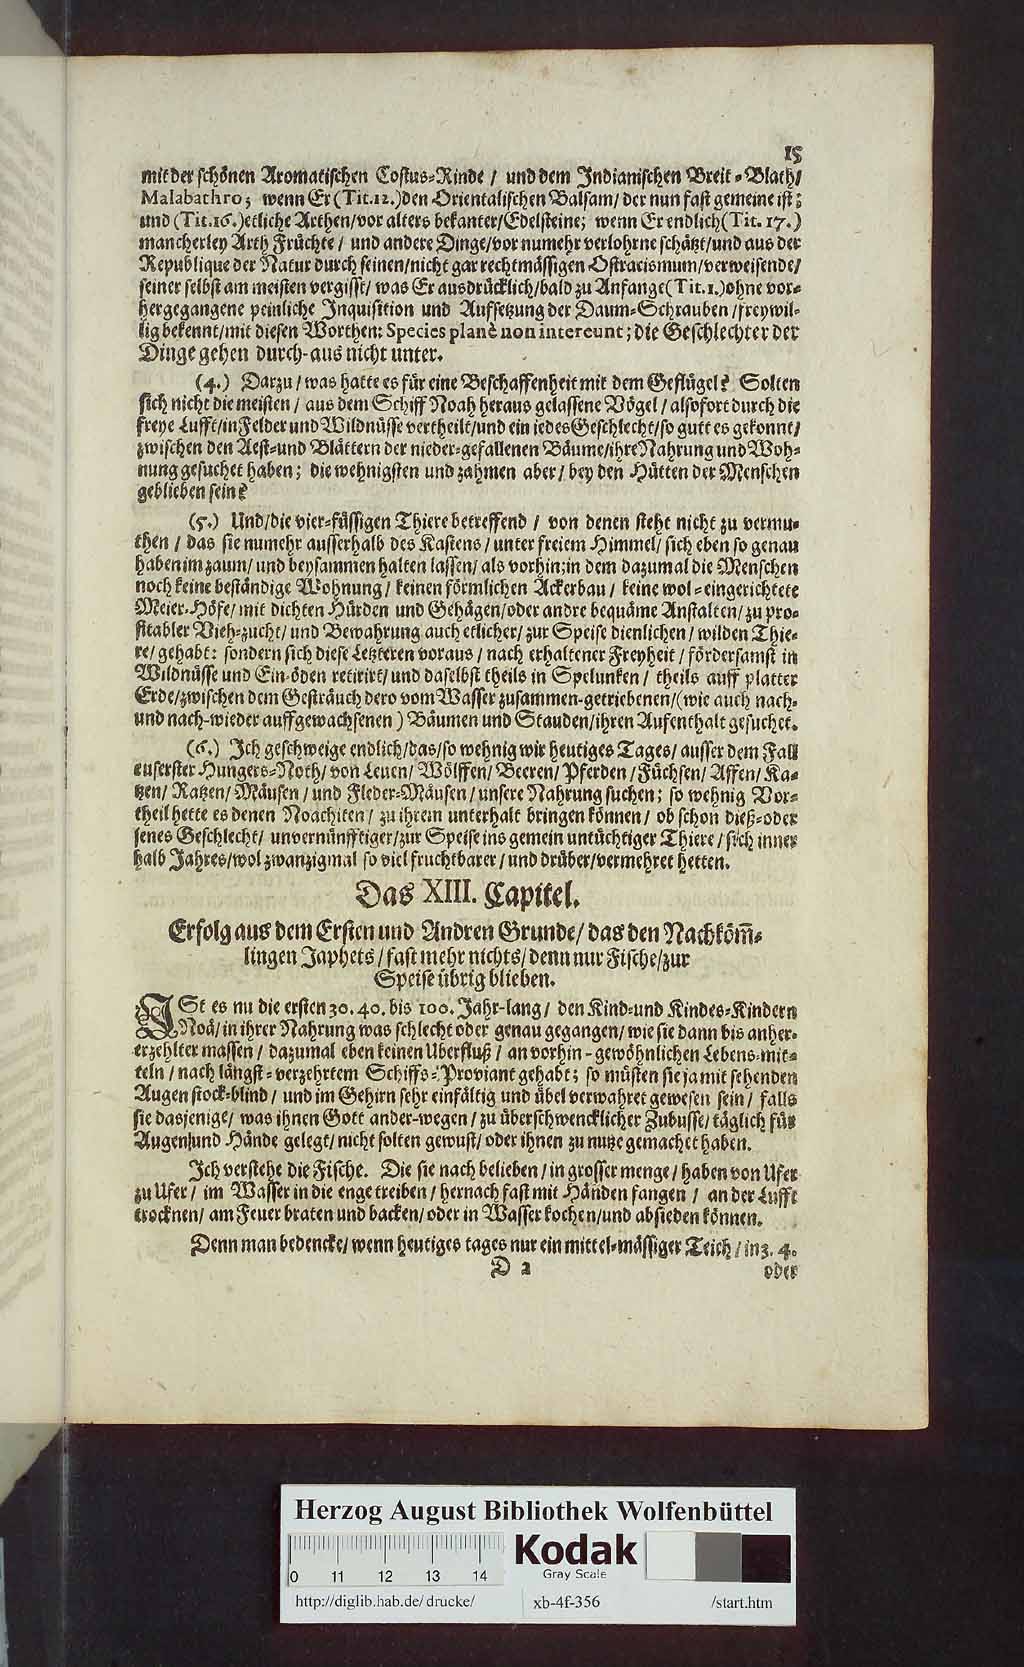 15
mit der schönen Aromatischen Costus-Rinde / und dem Indianischen Breit-Blath/
Malabathro; wenn Er (Tit. 12.) den Orientalischen Balsam/ der nun fast gemeine ist;
und (Tit. 16.) etliche Arthen/ vor alters bekanter/ Edelsteine; wenn Er endlich (Tit. 17.)
mancherley Arth Früchte / und andere Dinge/ vor numehr verlohrne schätzt/ und aus der
Republique der Natur durch seinen/ nicht gar rechtmässigen Ostracismum/ verweisende/
seiner selbst am meisten vergisst/ was Er ausdrücklich/ bald zu Anfange (Tit. 1.) ohne vor-
hergegangene peinliche Inquisition und Auffsetzung der Daum-Schrauben / freywil-
lig bekennt/ mit diesen Worthen: Species planè non intereunt; die Geschlechter der
Dinge gehen durch-aus nicht unter.
(4.) Darzu / was hatte es für eine Beschaffenheit mit dem Geflügel? Solten
sich nicht die meisten / aus dem Schiff Noah heraus gelassene Vögel / alsofort durch die
freye Lufft/ in Felder und Wildnüsse vertheilt/ und ein iedes Geschlecht/ so gutt es gekonnt/
zwischen den Aest-und Blättern der nieder-gefallenen Bäume/ ihre Nahrung und Woh-
nung gesuchet haben; die wehnigsten und zahmen aber / bey den Hütten der Menschen
geblieben sein?
(5.) Und/ die vier-füssigen Thiere betreffend / von denen steht nicht zu vermu-
then / das sie numehr ausserhalb des Kastens / unter freiem Himmel/ sich eben so genau
haben im zaum/ und beysammen halten lassen/ als vorhin; in dem dazumal die Menschen
noch keine beständige Wohnung / keinen förmlichen Ackerbau / keine wol-eingerichtete
Meier-Höfe/ mit dichten Hürden und Gehägen/ oder andre bequäme Anstalten/ zu pro-
fitabler Vieh-zucht/ und Bewahrung auch etlicher/ zur Speise dienlichen/ wilden Thie-
re/ gehabt: sondern sich diese Letzteren voraus / nach erhaltener Freyheit / fördersamst in
Wildnüsse und Ein-öden retirirt/ und daselbst theils in Spelunken / theils auff platter
Erde/ zwischen dem Gesträuch dero vom Wasser zusammen-getriebenen/ (wie auch nach-
und nach-wieder auffgewachsenen) Bäumen und Stauden/ ihren Aufenthalt gesuchet.
(6.) Ich geschweige endlich/ das/ so wehnig wir heutiges Tages/ ausser dem Fall
euserster Hungers-Noth/ von Leuen/ Wölffen/ Beeren/ Pferden / Füchsen/ Affen/ Ka-
tzen/ Ratzen/ Mäusen / und Fleder-Mäusen / unsere Nahrung suchen; so wehnig Vor-
theil hette es denen Noachiten / zu ihrem unterhalt bringen können / ob schon dieß-oder
jenes Geschlecht/ unvernünfftiger/ zur Speise ins gemein untüchtiger Thiere / sich inner
halb Jahres/ wol zwanzigmal so viel fruchtbarer / und drüber/ vermehret hetten.
Das XIII. Capitel.
Erfolg aus dem Ersten und Andren Grunde/ das den Nachköm̃-
lingen Japhets / fast mehr nichts/ denn nur Fische/ zur
Speise übrig blieben.
ISt es nu die ersten 30. 40. bis 100. Jahr-lang / den Kind-und Kindes-Kindern
Noä/ in ihrer Nahrung was schlecht oder genau gegangen/ wie sie dann bis anher-
erzehlter massen / dazumal eben keinen Uberfluß / an vorhin-gewöhnlichen Lebens-mit-
teln / nach längst-verzehrtem Schiffs-Proviant gehabt; so müsten sie ja mit sehenden
Augen stock-blind / und im Gehirn sehr einfältig und übel verwahret gewesen sein / falls
sie dasjenige/ was ihnen Gott ander-wegen / zu überschwencklicher Zubusse/ täglich für
Augen/ und Hände gelegt/ nicht solten gewust/ oder ihnen zu nutze gemachet haben.
Ich verstehe die Fische. Die sie nach belieben/ in grosser menge/ haben von Ufer
zu Ufer / im Wasser in die enge treiben / hernach fast mit Händen fangen / an der Lufft
trocknen/ am Feuer braten und backen/ oder in Wasser kochen/ und absieden können.
Denn man bedencke/ wenn heutiges tages nur ein mittel-mässiger Teich / in 3. 4.
D 2
oder
Herzog August Bibliothek Wolfenbüttel
0 11 12 13 14
Kodak
Gray Scale
http://diglib.hab.de/drucke/ xb-4f-356 /start.htm